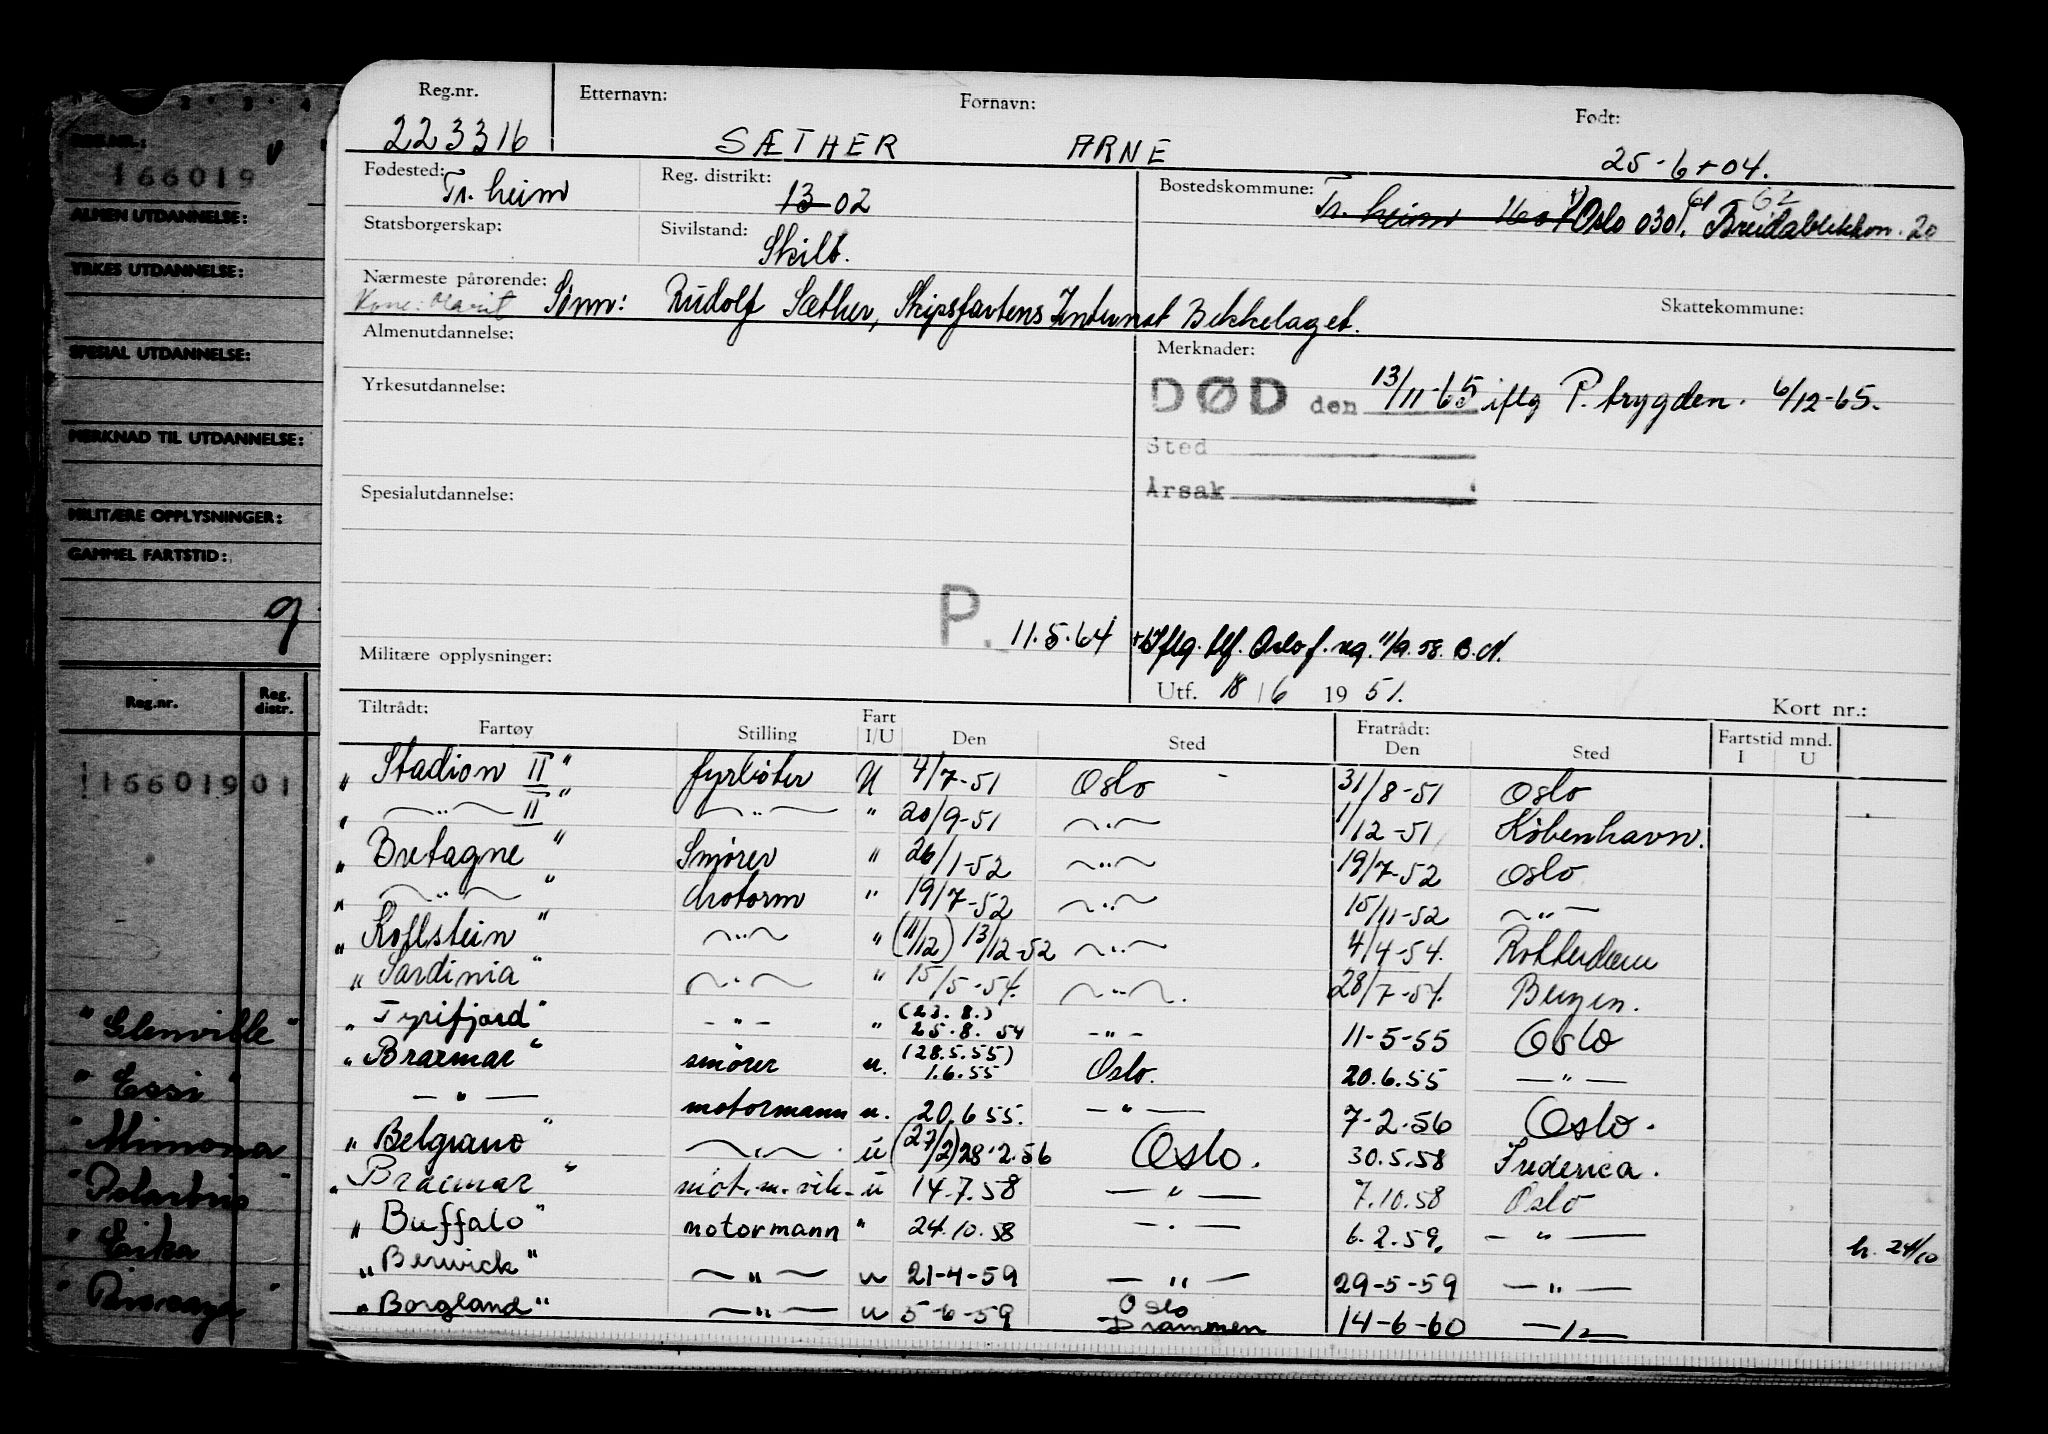 REG.NR.:
166019
ALMEN UTDANNELSE:
YRKES UTDANNELSE:
SPESIAL UTDANNELSE:
MERKNAD TIL UTDANNELSE:
MILITÆRE OPPLYSNINGER:
GAMMEL FARTSTID:
9
Reg.nr. Reg. distr.
116601901
"Glenville"
"Essi"
"Mimona
"Polarbris"
"Erika
Reg.nr. Etternavn: Fornavn: Født:
223316 SÆTHER ARNE 25-6-04.
Fødested: Tr. heim Reg. distrikt: 13 02 Bostedskommune: Tr. heim 1601 Oslo 0301. Breidablikkvn. 20
62
Statsborgerskap: Sivilstand: Skilt.
Nærmeste pårørende: Sønn: Rudolf Sæther, Skipsfartens Internat Bekkelaget. Skattekommune:
Kone: Marit
Almenutdannelse: Merknader:
DØD den 13/11-65 iflg P. trygden. 6/12-65.
Yrkesutdannelse:
Sted
Årsak
Spesialutdannelse:
P. 11.5.64 Iflg. tlf. Oslo f. reg. 11/9.58. B.N.
Militære opplysninger:
Utf. 18/6 1951. Kort nr.:
Tiltrådt: Fratrådt: Fartstid mnd.
Fartøy Stilling Fart I/U Den Sted Den Sted I U
"Stadion II" fyrbøter U 4/7-51 Oslo 31/8-51 Oslo
" —"— II" —"— " 20/9-51 —"— 1/12-51 København.
"Bretagne" Smører " 26/1-52 —"— 19/7-52 Oslo
" —"— " Motorm " 19/7-52 —"— 15/11-52 —"—
"Kollstein" —"— " (11/12) 13/12-52 —"— 4/4-54. Rotterdam
"Sardinia" —"— " 15/5-54. —"—. 28/7-54. Bergen.
"Tyrifjord" —"— " (23.8.) 25.8.54 —"— 11-5-55 Oslo
"Braemar" smører u. (28.5.55) 1.6.55 Oslo. 20.6.55 —"—
—"— motormann u. 20.6 55. —"— 7-2-56 Oslo.
"Belgrano" —"— u (27/2) 28.2.56 Oslo. 30.5.58 Fredericia.
"Braemar" mot.m. vik. u 14.7.58 —"— 7.10.58 Oslo
"Buffalo" motormann " 24.10.58 —"— 6.2.59. —"— h. 24/10
"Berwick" —"— u 21-4-59 —"— 29-5-59 —"—
"Borgland" —"— u 5-6-59 Oslo Drammen 14-6-60 —"—